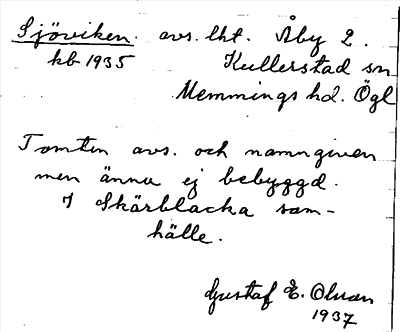 Sjöviken. avs. lht. Åby 2.
kb 1935 Kullerstad sn
Memmings hd. Ögl
Tomten avs. och namngiven
men ännu ej bebyggd.
I Skärblacka sam-
hälle.
Gustaf E. Olsson
1937